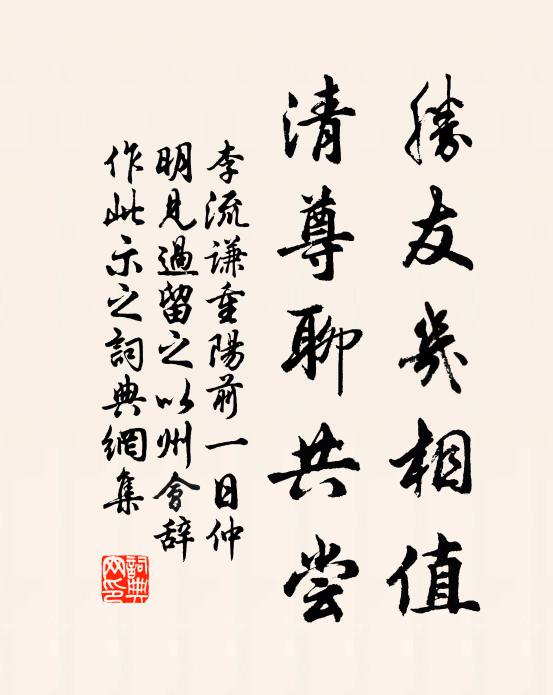 勝友幾相值
清尊聊共尝
李流謙重陽前一日仲
明見過留之以州會辞
作此示之詞典網集
詞典网印